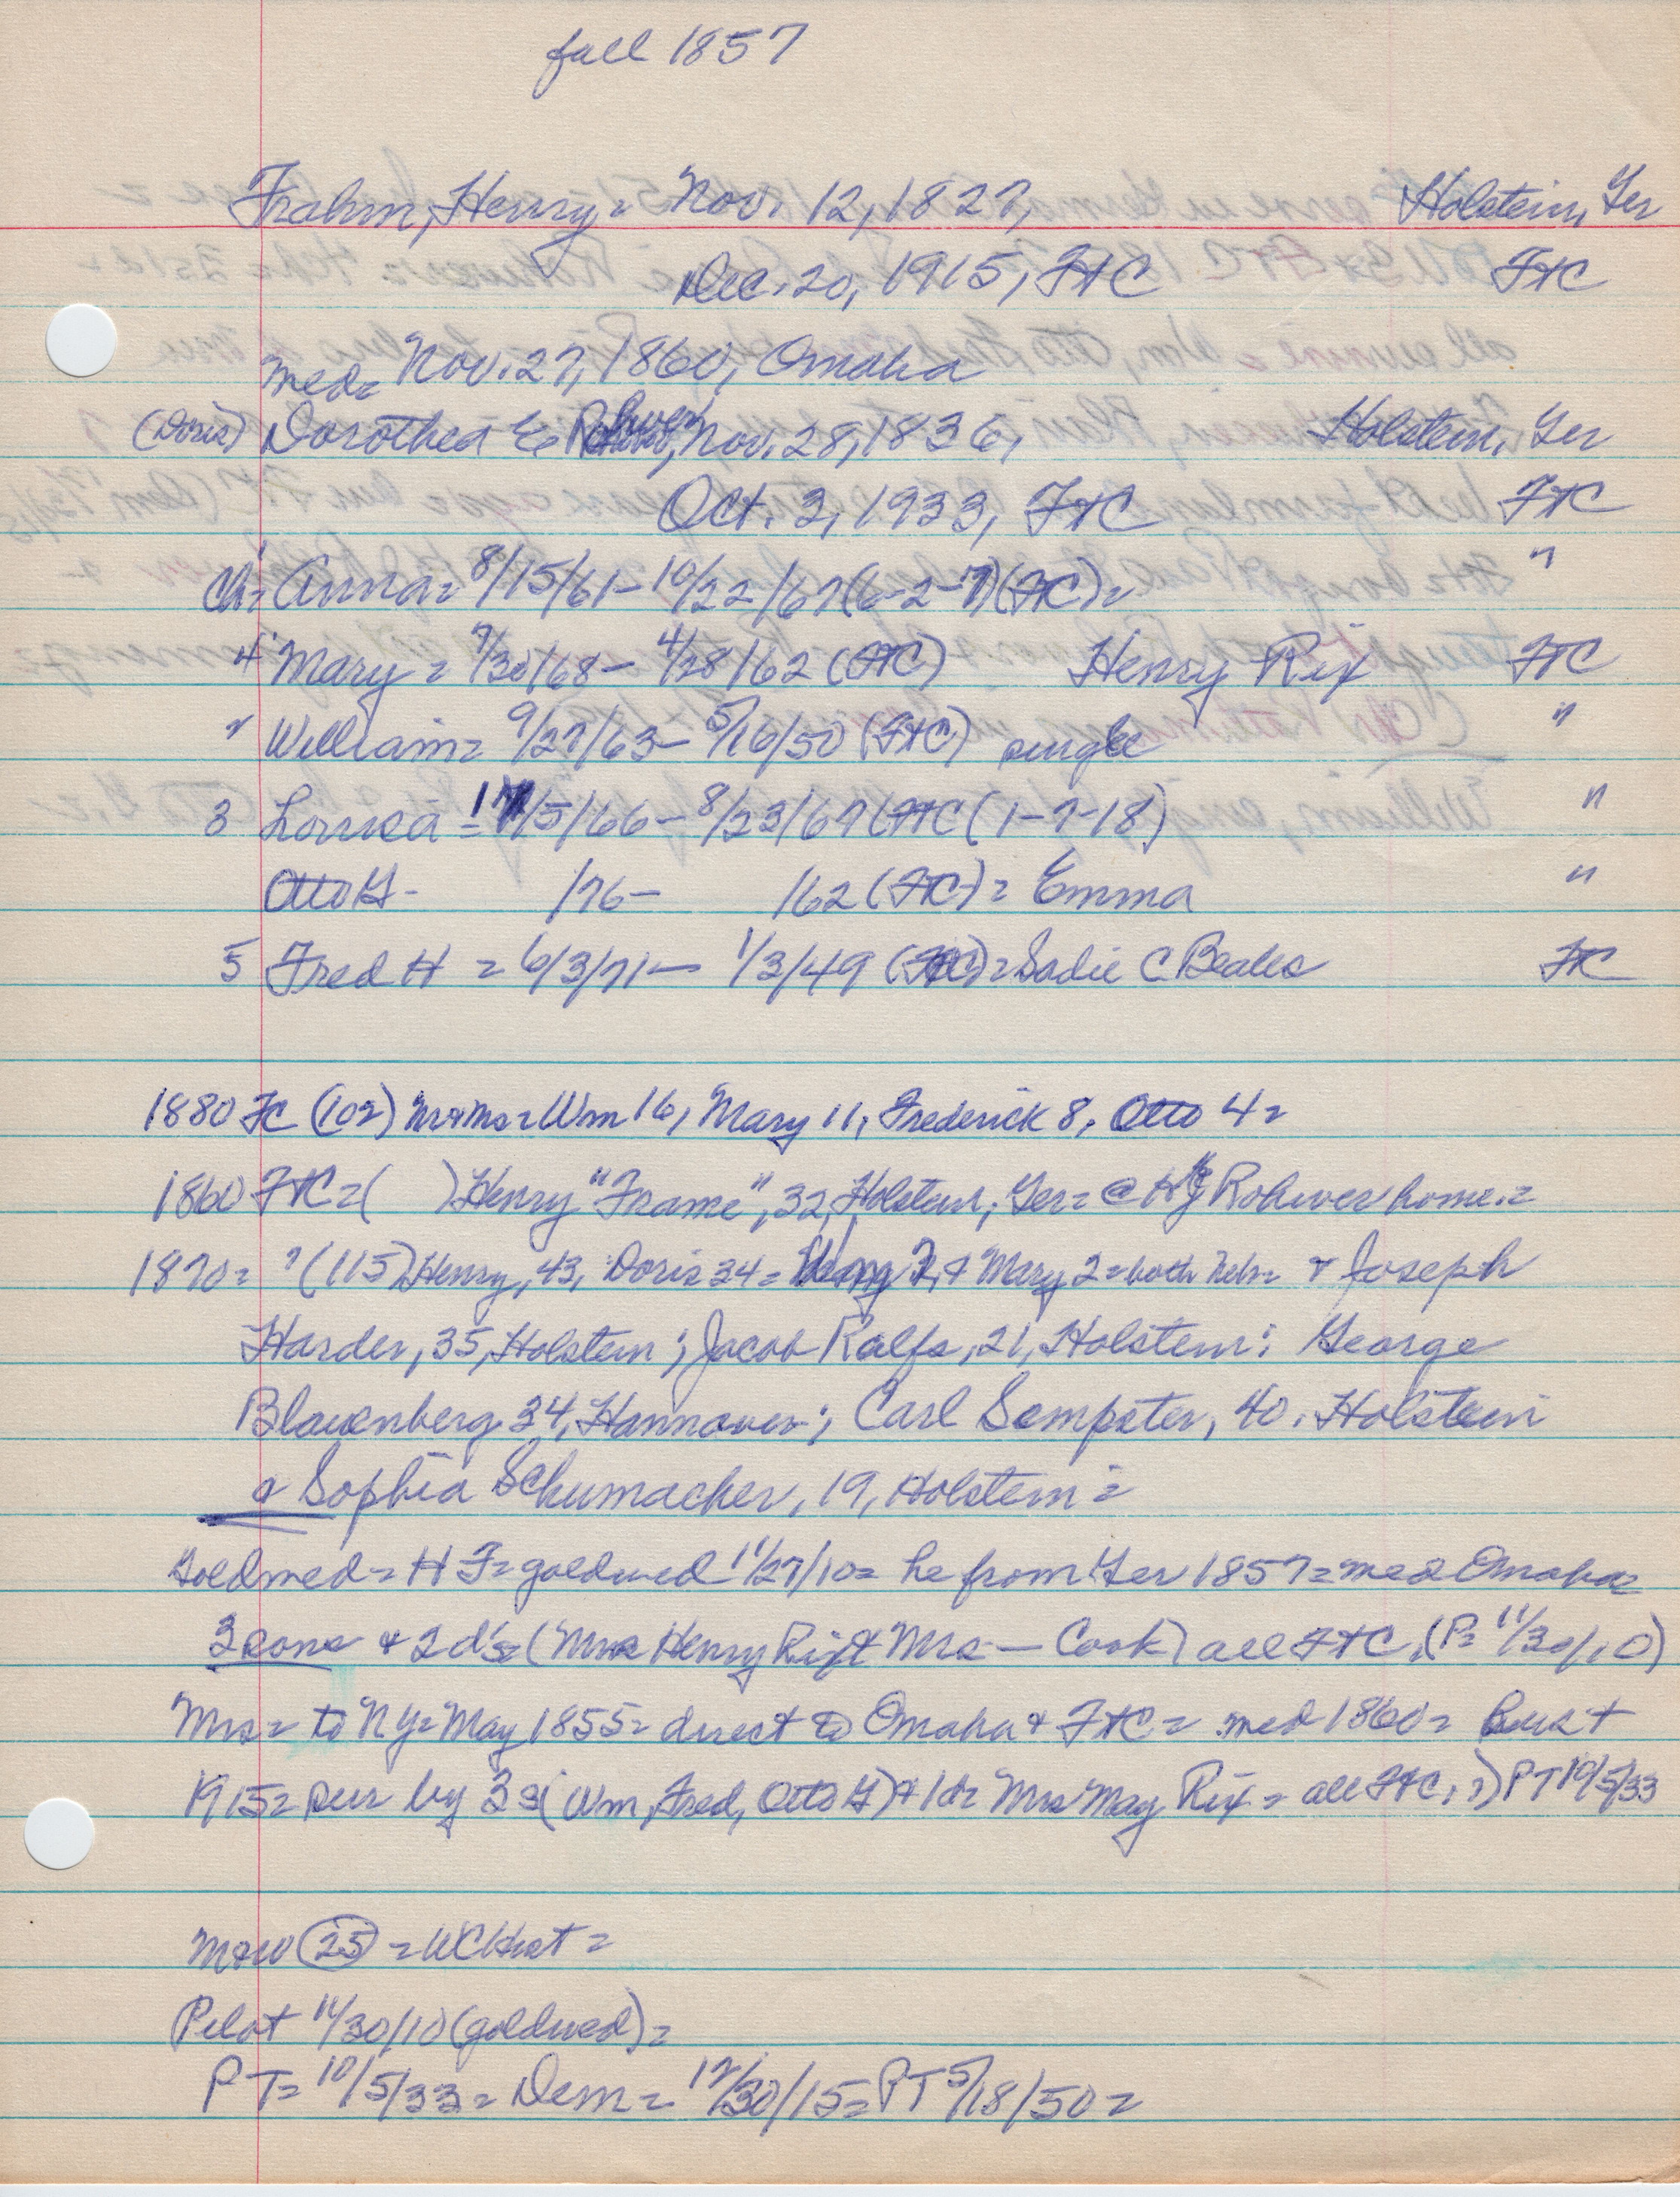 fall 1857
Frahm, Henry = Nov. 12, 1827, Holstein, Ger
Dec. 20, 1915, FtC FtC
med= Nov. 27, 1860, Omaha
(Doris) Dorothea E Rohwer, Nov. 28, 1836, Holstein, Ger
Oct. 3, 1933, FtC FtC
ch= Anna= 8/15/61- 10/22/67 (6-2-7) (FtC)= "
4 Mary = 7/30/68- 4/28/62 (FtC) Henry Rix FtC
" William= 9/27/63- 5/16/50 (FtC) single "
3 Louisa = 1/5/66- 8/23/67 (FtC (1-7-18) "
Otto G- /76- /62 (FtC) = Emma "
5 Fred H = 6/3/71- 1/3/49 (FtC) = Sadie C Beales FC
1880 FC (102) Mr+Ms= Wm 16, Mary 11, Frederick 8, Otto 4=
1860 FtC = ( ) Henry "Frame", 32, Holstein, Ger= @ H J Rohwer home.=
1870= " (115) Henry, 43, Doris 34= 7, + Mary 2=both Neb= + Joseph
Harder, 35, Holstein; Jacob Ralfs, 21, Holstein; George
Blauenberg 34, Hannover; Carl Sempster, 40, Holstein
+ Sophia Schumacher, 19, Holstein =
Goldmed= H F= goldwed 11/27/10= he from Ger 1857= med Omaha=
3 sons + 2 d's= (Mrs Henry Rix + Mrs - Cook) all FtC. (P= 11/30/10)
Mrs= to NY= May 1855= direct to Omaha + FtC= med 1860= +
1915= sur by 3 s (Wm, Fred, Otto G) + 1d= Mrs May Rix = all FtC. =) PT 10/5/33
M+W (25) = WCHist =
Pilot 11/30/10 (goldwed) =
PT= 10/5/33= Dem= 12/30/15= PT 5/18/50=